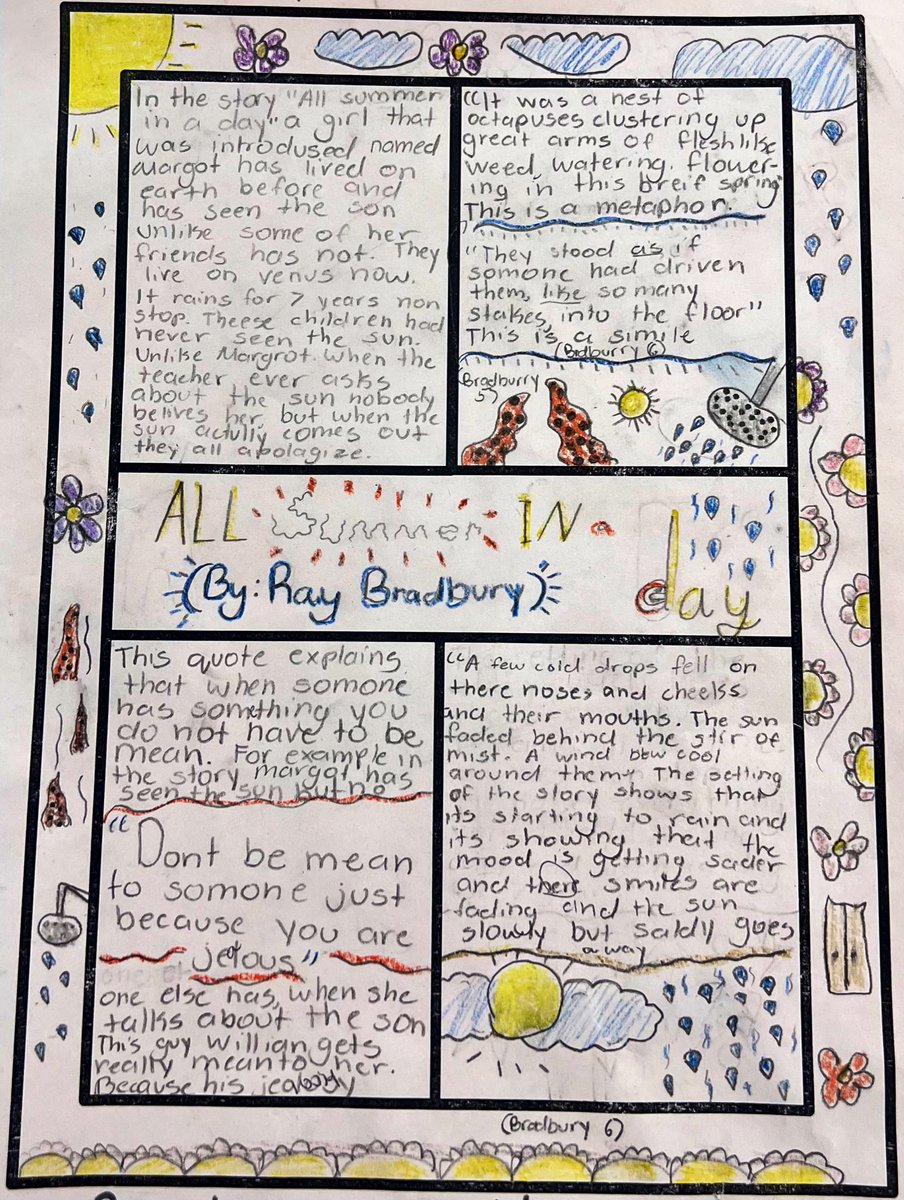 In the story "All summer
in a day" a girl that
was introdused named
Margot has lived on
earth before and
has seen the son
unlike some of her
friends has not. They
live on venus now.
It rains for 7 years non
stop. Theese children had
never seen the sun.
Unlike Margrot. When the
teacher ever asks
about the sun nobody
belives her, but when the
sun actfully comes out
they all apolagize.
"It was a nest of
octapuses clustering up
great arms of fleshlike
weed, watering. flower-
ing in this breif spring"
This is a metaphor.
"They stood as if
somone had driven
them, like so many
stakes, into the floor"
This is a simile
(Bradburry 6)
(Bradburry
5)
ALL Summer IN a day
(By: Ray Bradbury)
This quote explains
that when somone
has something you
do not have to be
mean. For example in
the story margot has
seen the sun but no
"Dont be mean
to somone just
because you are
jelous"
one else has, when she
talks about the son
This guy willian gets
really mean to her.
Because his jealousy
"A few cold drops fell on
there noses and cheekss
and their mouths. The sun
faded behind the stir of
mist. A wind blew cool
around them" The setting
of the story shows that
its starting to rain and
its showing that the
mood is getting sader
and there smiles are
fading and the sun
slowly but sadly goes
away
(Bradbury 6)